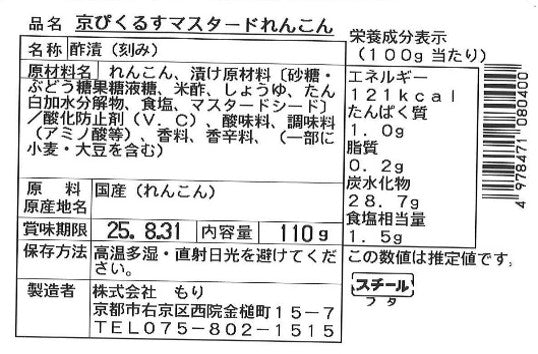 品名 京ぴくるすマスタードれんこん
名称 酢漬（刻み）
原材料名 れんこん、漬け原材料〔砂糖・
ぶどう糖果糖液糖、米酢、しょうゆ、たん
白加水分解物、食塩、マスタードシード〕
／酸化防止剤（Ｖ．Ｃ）、酸味料、調味料
（アミノ酸等）、香料、香辛料、（一部に
小麦・大豆を含む）
原料
原産地名
国産（れんこん）
賞味期限 25.8.31 内容量 110g
保存方法 高温多湿・直射日光を避けてくだ
さい。
製造者 株式会社 もり
京都市右京区西院金槌町１５－７
ＴＥＬ０７５－８０２－１５１５
栄養成分表示
（１００g当たり）
エネルギー
１２１kcal
たんぱく質
１．０g
脂質
０．２g
炭水化物
２８．７g
食塩相当量
１．５g
この数値は推定値です。
スチール
フタ
4 978471 080400